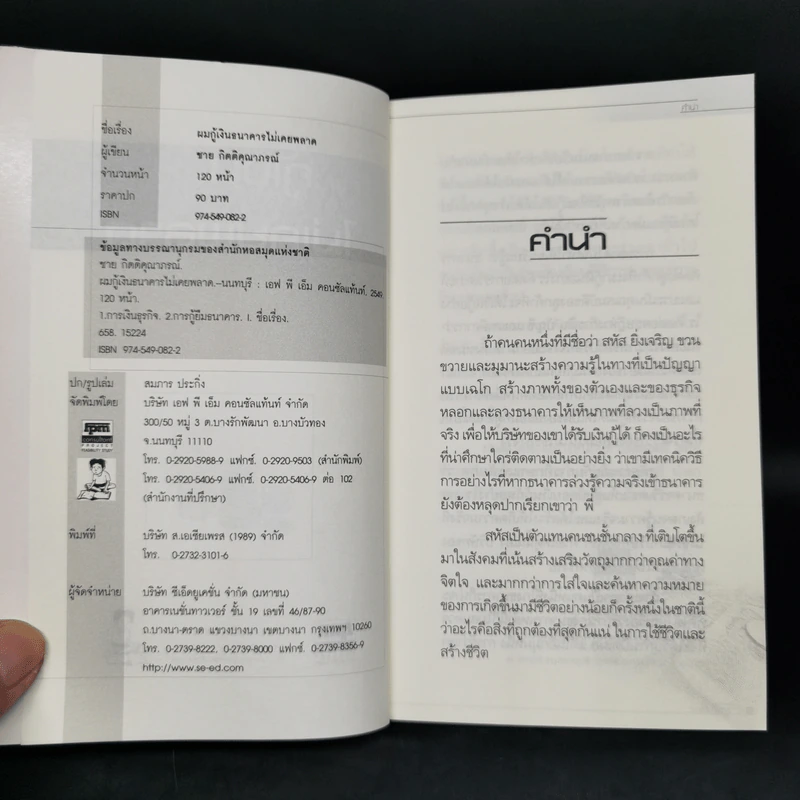 ชื่อเรื่อง ผมกู้เงินธนาคารไม่เคยพลาด
ผู้เขียน ชาย กิตติคุณาภรณ์
จำนวนหน้า 120 หน้า
ราคาปก 90 บาท
ISBN 974-549-082-2
ข้อมูลทางบรรณานุกรมของสำนักหอสมุดแห่งชาติ
ชาย กิตติคุณาภรณ์.
ผมกู้เงินธนาคารไม่เคยพลาด.--นนทบุรี : เอฟ พี เอ็ม คอนซัลแท้นท์, 2549.
120 หน้า.
1.การเงินธุรกิจ. 2.การกู้ยืมธนาคาร. I. ชื่อเรื่อง.
658. 15224
ISBN 974-549-082-2
ปก/รูปเล่ม สมภาร ประกิ่ง
จัดพิมพ์โดย บริษัท เอฟ พี เอ็ม คอนซัลแท้นท์ จำกัด
300/50 หมู่ 3 ต.บางรักพัฒนา อ.บางบัวทอง
จ.นนทบุรี 11110
โทร. 0-2920-5988-9 แฟกซ์. 0-2920-9503 (สำนักพิมพ์)
โทร. 0-2920-5406-9 แฟกซ์. 0-2920-5406-9 ต่อ 102
(สำนักงานที่ปรึกษา)
พิมพ์ที่ บริษัท ส.เอเซียเพรส (1989) จำกัด
โทร. 0-2732-3101-6
ผู้จัดจำหน่าย บริษัท ซีเอ็ดยูเคชั่น จำกัด (มหาชน)
อาคารเนชั่นทาวเวอร์ ชั้น 19 เลขที่ 46/87-90
ถ.บางนา-ตราด แขวงบางนา เขตบางนา กรุงเทพฯ 10260
โทร. 0-2739-8222, 0-2739-8000 แฟกซ์. 0-2739-8356-9
http://www.se-ed.com
คำนำ
คำนำ
ถ้าคนคนหนึ่งที่มีชื่อว่า สหัส ยิ่งเจริญ ชวน
ขวายและมุมานะสร้างความรู้ในทางที่เป็นปัญญา
แบบเฉโก สร้างภาพทั้งของตัวเองและของธุรกิจ
หลอกและลวงธนาคารให้เห็นภาพที่ลวงเป็นภาพที่
จริง เพื่อให้บริษัทของเขาได้รับเงินกู้ได้ ก็คงเป็นอะไร
ที่น่าศึกษาใคร่ติดตามเป็นอย่างยิ่ง ว่าเขามีเทคนิควิธี
การอย่างไรที่หากธนาคารล่วงรู้ความจริงเข้าธนาคาร
ยังต้องหลุดปากเรียกเขาว่า พี่
สหัสเป็นตัวแทนคนชนชั้นกลาง ที่เติบโตขึ้น
มาในสังคมที่เน้นสร้างเสริมวัตถุมากกว่าคุณค่าทาง
จิตใจ และมากกว่าการใส่ใจและค้นหาความหมาย
ของการเกิดขึ้นมามีชีวิตอย่างน้อยก็ครั้งหนึ่งในชาตินี้
ว่าอะไรคือสิ่งที่ถูกต้องที่สุดกันแน่ ในการใช้ชีวิตและ
สร้างชีวิต